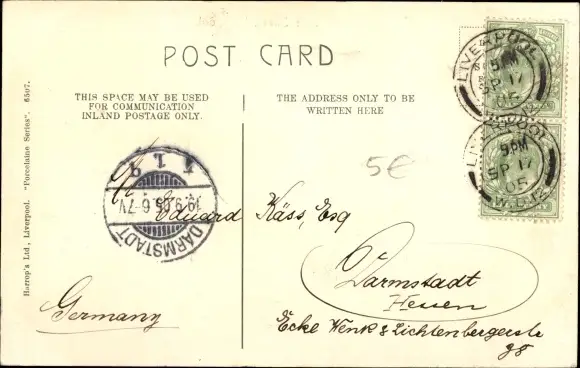 POST CARD
THIS SPACE MAY BE USED
FOR COMMUNICATION
INLAND POSTAGE ONLY.
THE ADDRESS ONLY TO BE
WRITTEN HERE
Harrop's Ltd., Liverpool. "Porcelaine Series". 6507.
LIVERPOOL
5 PM
SP 17
05
LIVERPOOL
5 PM
SP 17
05
5€
DARMSTADT
19.9.05.6-7V
Eduard Käss, Esq
Darmstadt
Hessen
Ecke Wenk & Lichtenbergerstr
98
Germany